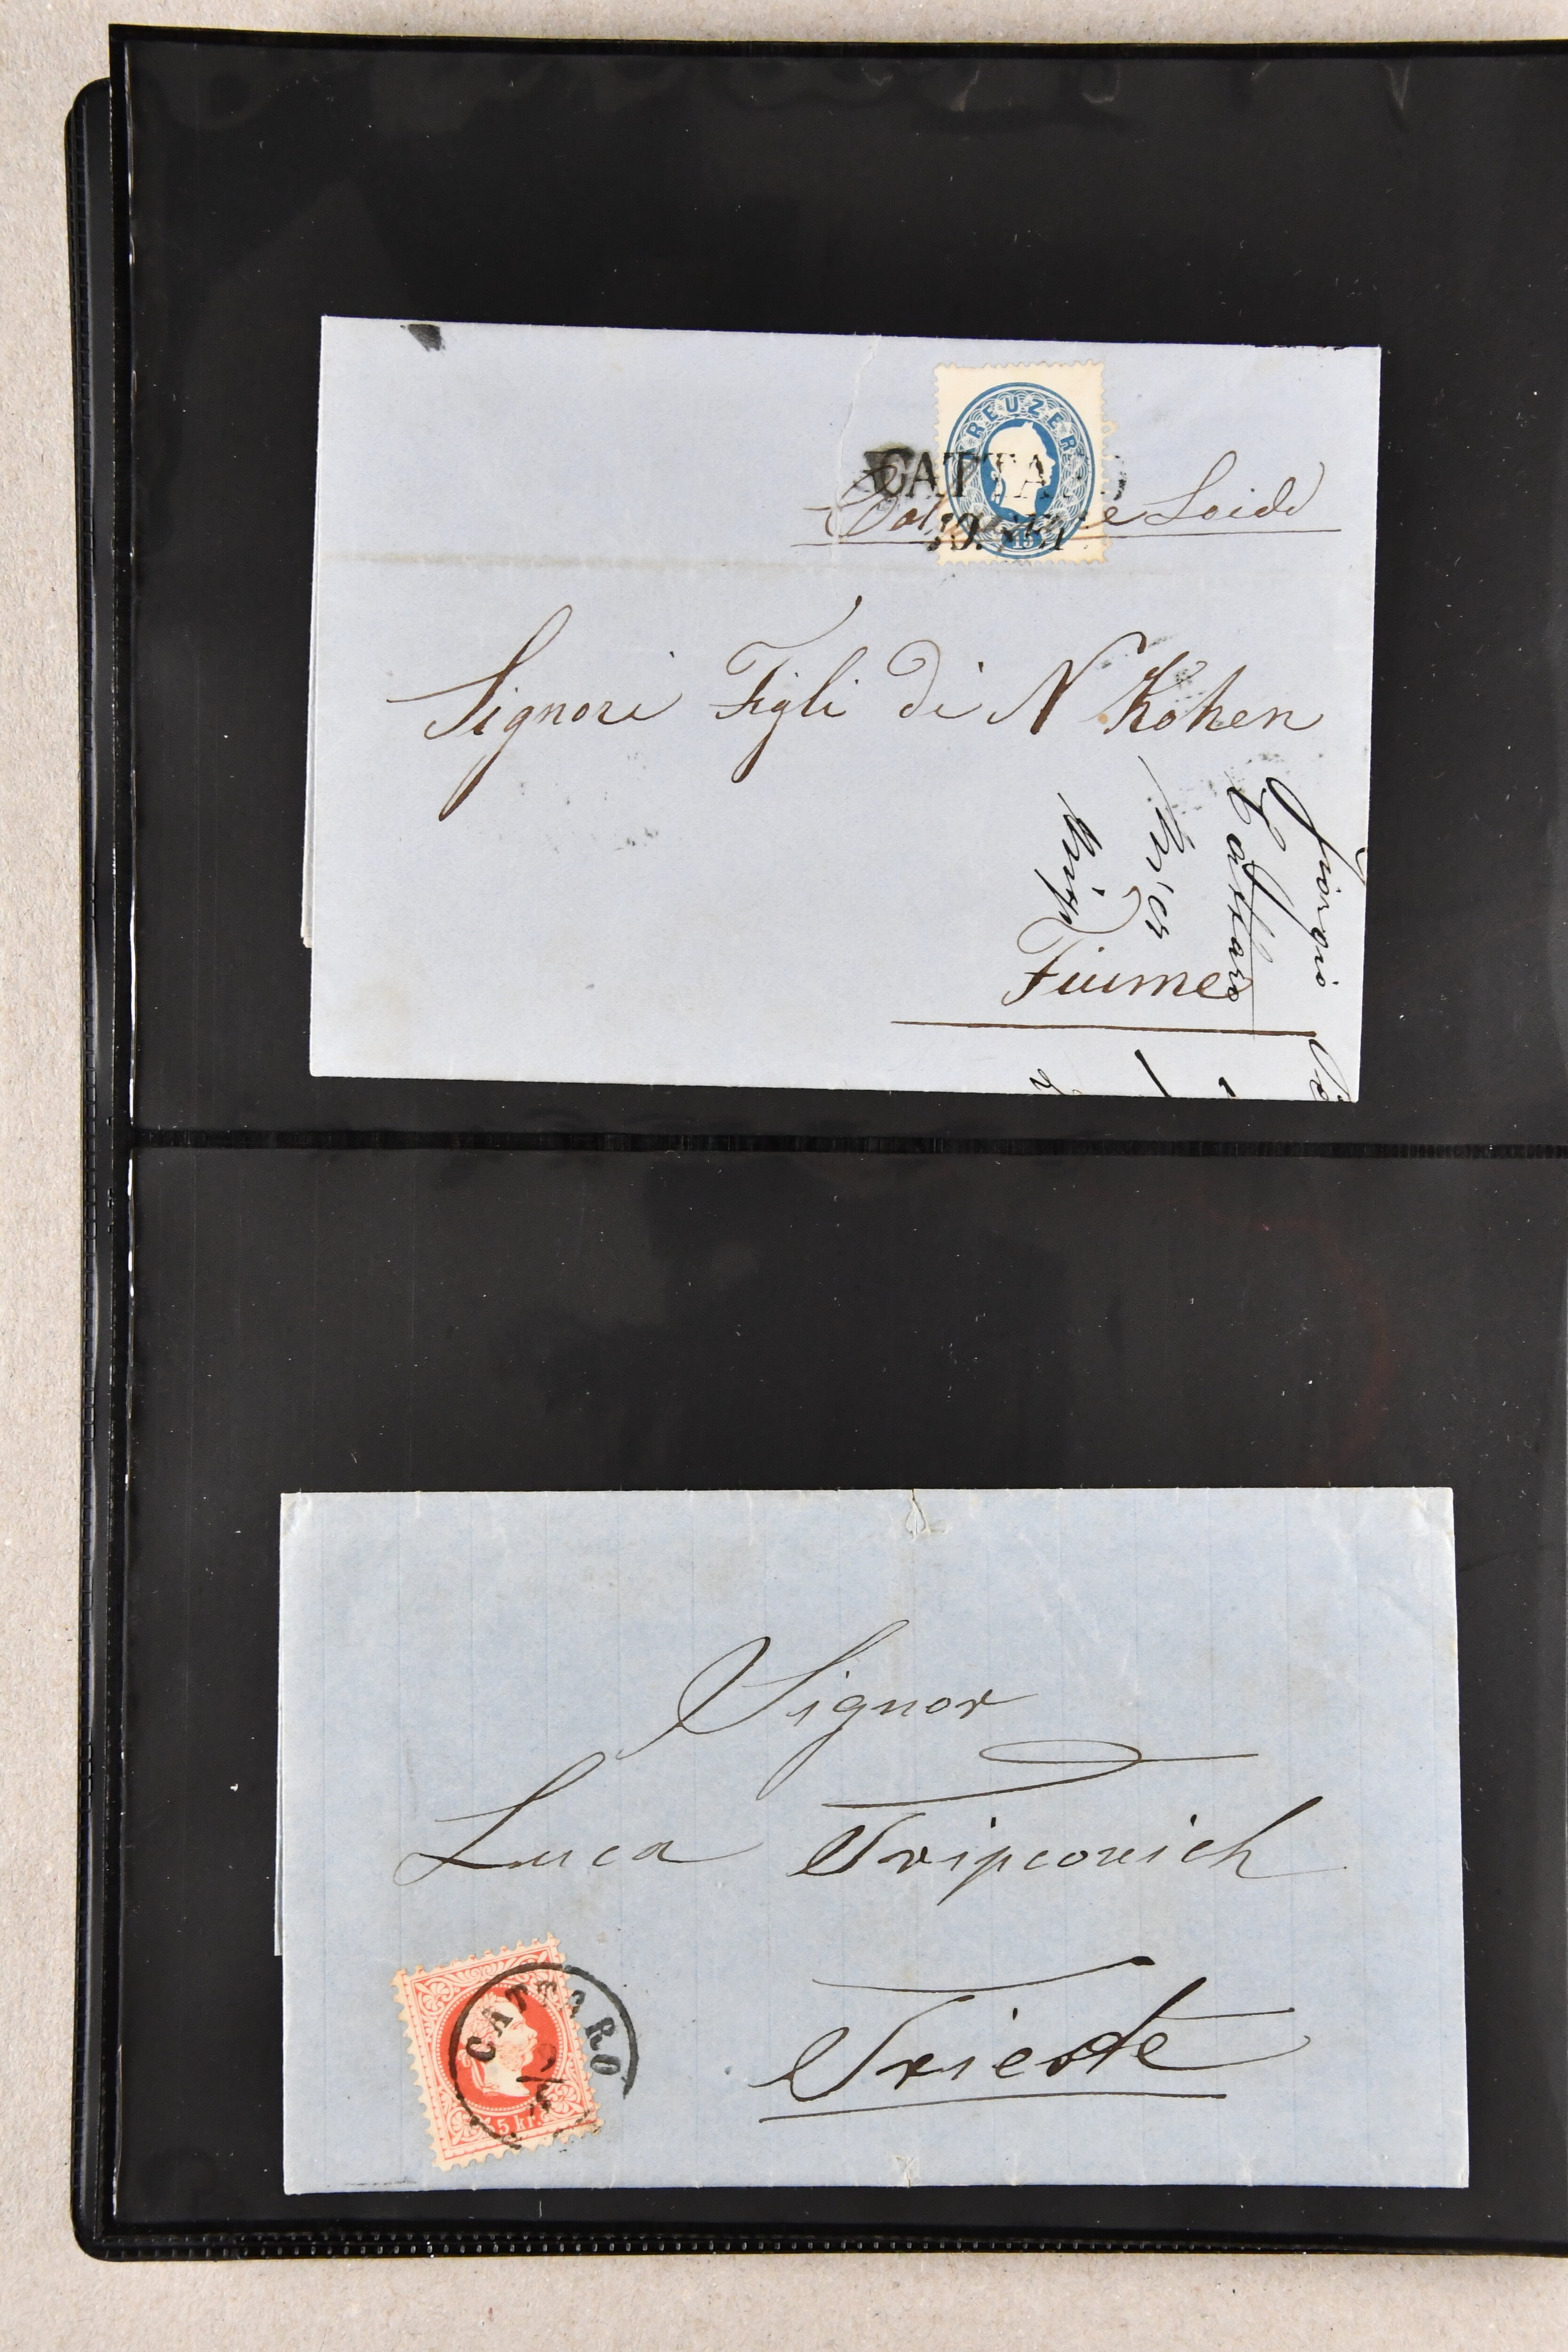 KREUZER
15
CATTA
Signori Figli di N Kohen
Fiume
Giorgio
Cattaro
Signor
Luca Tripcovich
Trieste
CATTARO
5 kr.